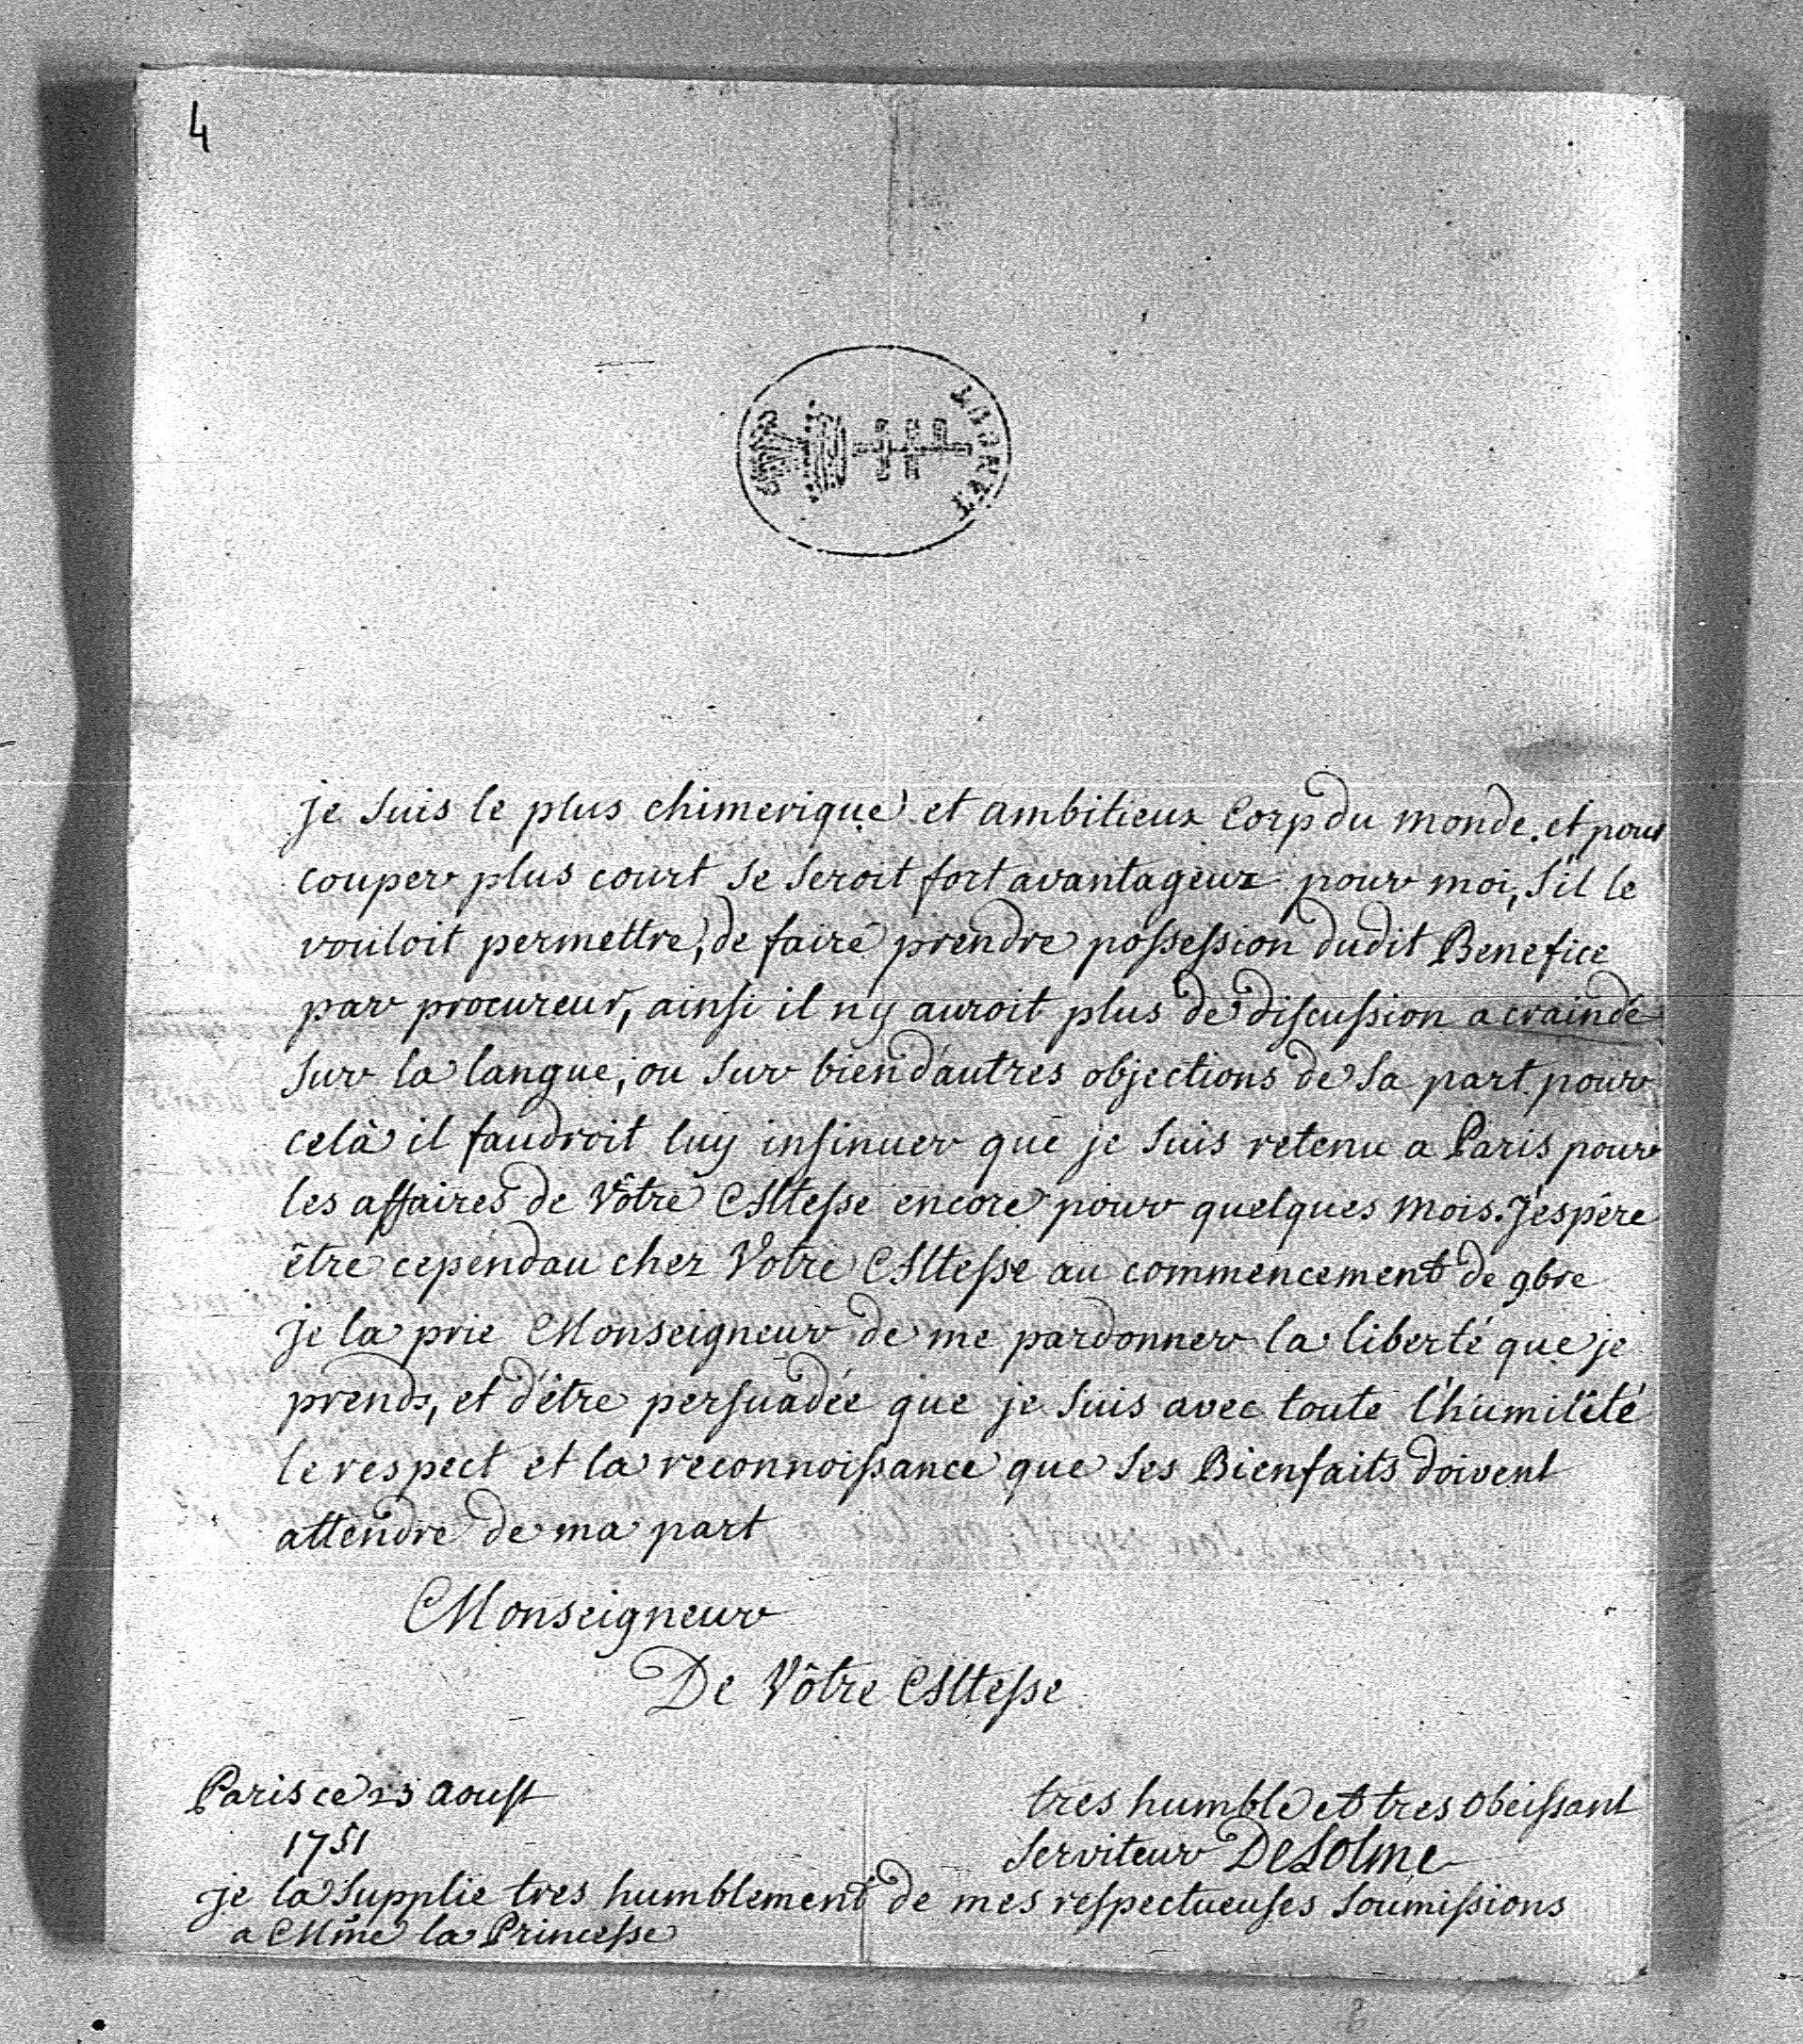 4
je suis le plus chimerique et ambitieux Corp du monde. et pour
couper plus court se seroit fort avantageux pour moi, s'il le
vouloit permettre, de faire prendre possession dudit Benefice
par procureur, ainsi il ny auroit plus de discussion a craindé
sur la langue, ou sur bien d'autres objections de sa part. pour
celà il faudroit luy insinuer que je suis retenu a Paris pour
les affaires de Vôtre Altesse encore pour quelques mois. J'espére
être cependau chez Votre Altesse au commencement de 9bre
je la prie Monseigneur de me pardonner la liberté que je
prends, et d'être persuadée que je suis avec toute l'humilité
le respect et la reconnoissance que ses Bienfaits doivent
attendre de ma part
Monseigneur
De Vôtre Altesse
Paris ce 23 aoust
1751
tres humble et tres obeissant
serviteur DeLolme
je la supplie tres humblement de mes respectueuses soumissions
a Mme la Princesse